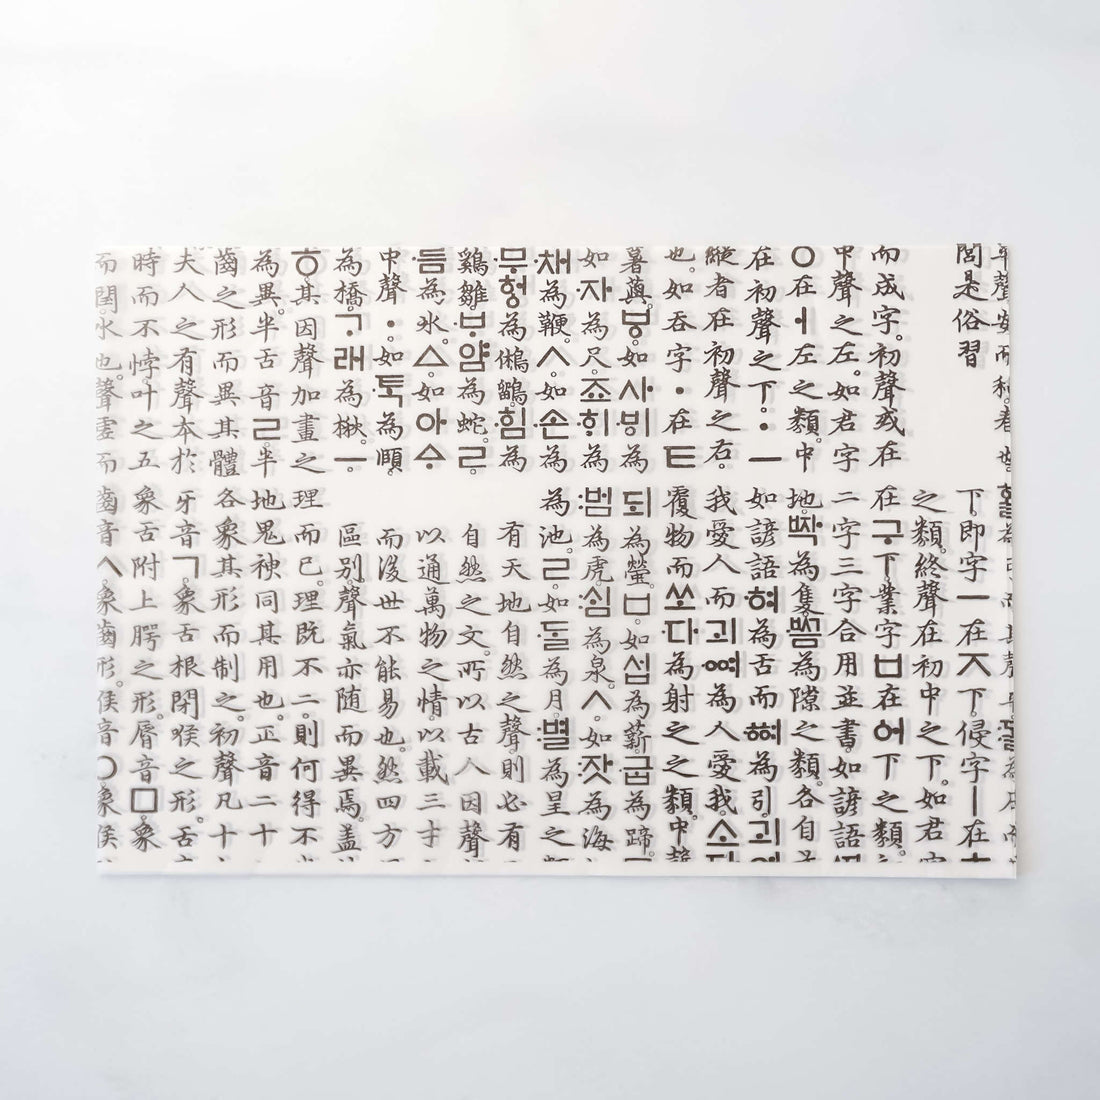 閭是俗習
而成字。初聲或在
中聲之左。如君字
ㅇ在ㅓ左之類。中
在初聲之下。ㆍㅡ
縱者在初聲之右。
也。如呑字ㆍ在ㅌ
薯藇。ㅸ如사ᄫᅵ為
如자為尺。죠ᄒᆡ為
채為鞭。ㅅ如손為
為鵂鶹。힘為
鷄雛。ᄇᆞ얌為蛇。ㄹ
름為氷。ㅿ如아ᅀᆞ
中聲ㆍ如ᄐᆞᆨ為頤
為橋。ᄀᆞ래為楸。ㅡ
ㆆ其因聲加畫之
為異。半舌音ㄹ。半
齒之形而異其體
夫人之有聲本於
時而不悖。叶之五
而閏。水也。聲虛而
下即字ㅡ在ㅈ下。侵字ㅣ在
之類。終聲在初中之下。如君
在구下。業字ㅂ在어下之類。
二字三字合用並書。如諺語
地。ᄧᅡᆨ為隻。ᄢᅳᆷ為隙之類。各自
如諺語혀為舌而ᅘᅧ為引。괴여
我愛人而괴ᅇᅧ為人愛我。소다
覆物而쏘다為射之之類。中聲
되為螢。ㅁ如섭為薪。굽為蹄。
범為虎。ᄉᆡᆷ為泉。ㅅ如잣為海
為池。ㄹ如ᄃᆞᆯ為月。별為星之
有天地自然之聲。則必有
自然之文。所以古人因聲
以通萬物之情。以載三才
而後世不能易也。然四方
區別。聲氣亦隨而異焉。盖
理而已。理既不二。則何得不
地鬼神同其用也。正音二十
各象其形而制之。初聲凡十
牙音ㄱ。象舌根閉喉之形。舌
象舌附上腭之形。脣音ㅁ。象
齒音ㅅ。象齒形。喉音ㅇ。象喉